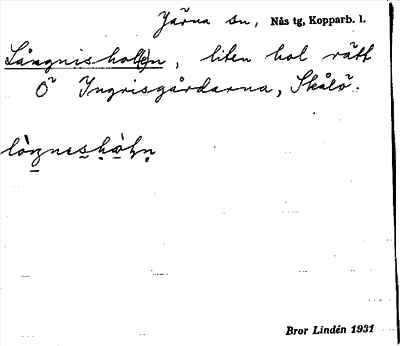 Järna sn, Nås tg, Kopparb. l.
Långnisholl(e)n, liten hol rätt
Ö Ingrisgårdarna, Skålö.
Bror Lindén 1931